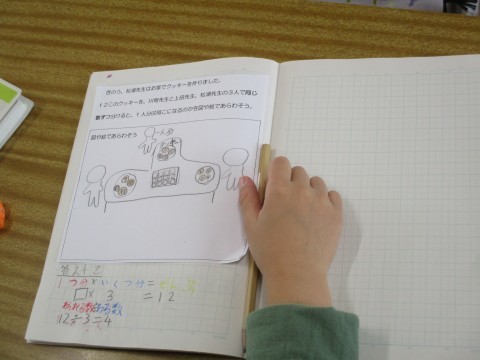 きのう、松浦先生はお家でクッキーを作りました。
12このクッキーを、川畑先生と上田先生、松浦先生の3人で同じ
数ずつ分けると、1人分は何こになるのかを図や絵であらわそう。
図や絵であらわそう
一人分
1つ分×いくつ分=
□×3=12
わられる数 わる数
12÷3=4